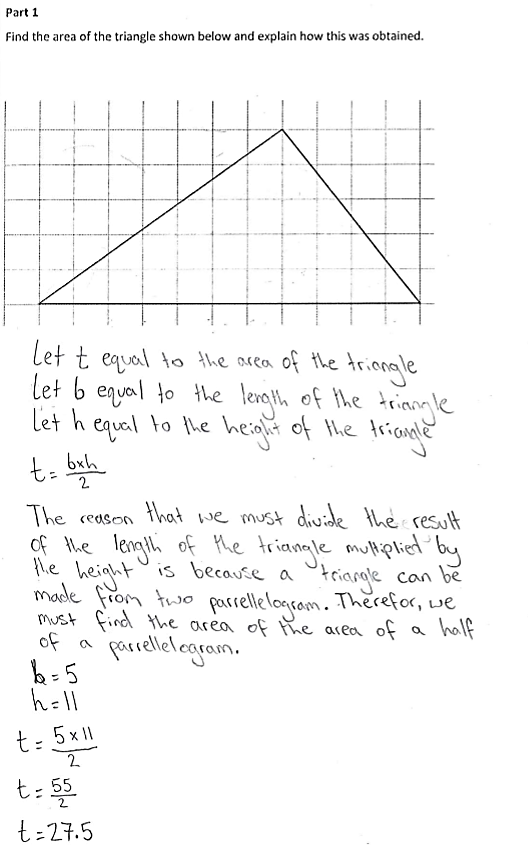 Part 1
Find the area of the triangle shown below and explain how this was obtained.
Let t equal to the area of the triangle
Let b equal to the length of the triangle
Let h equal to the height of the triangle
t = b×h
2
The reason that we must divide the result
of the length of the triangle multiplied by
the height is because a triangle can be
made from two parrellelogram. Therefor, we
must find the area of the area of a half
of a parrellelogram.
b = 5
h = 11
t = 5 × 11
2
t = 55
2
t = 27.5